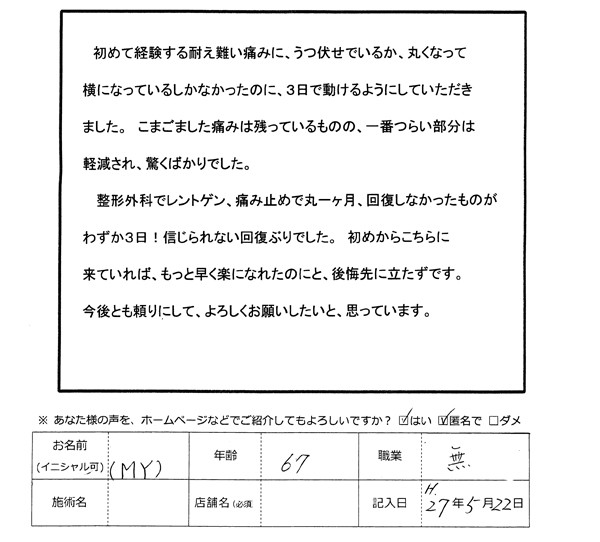 初めて経験する耐え難い痛みに、うつ伏せでいるか、丸くなって
横になっているしかなかったのに、3日で動けるようにしていただき
ました。 こまごました痛みは残っているものの、一番つらい部分は
軽減され、驚くばかりでした。
整形外科でレントゲン、痛み止めで丸一ヶ月、回復しなかったものが
わずか3日!信じられない回復ぶりでした。 初めからこちらに
来ていれば、もっと早く楽になれたのにと、後悔先に立たずです。
今後とも頼りにして、よろしくお願いしたいと、思っています。
※ あなた様の声を、ホームページなどでご紹介してもよろしいですか? ☑はい ☑匿名で □ダメ
お名前 (イニシャル可) (MY) 年齢 67 職業 無
施術名 店舗名(必須 記入日 H.27年5月22日